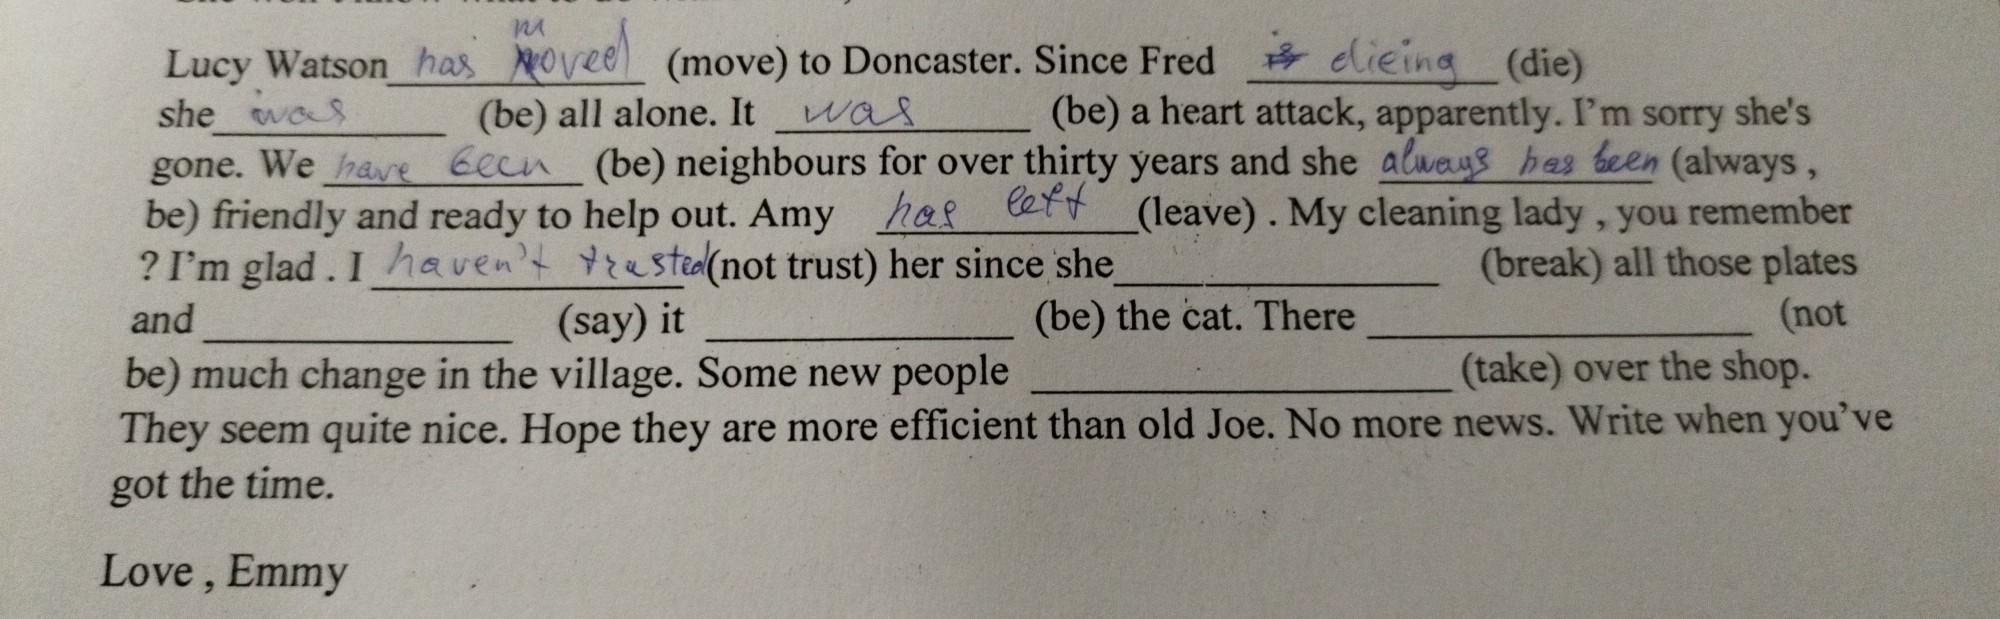 Lucy Watson has moved (move) to Doncaster. Since Fred dieing (die)
she was (be) all alone. It was (be) a heart attack, apparently. I'm sorry she's
gone. We have been (be) neighbours for over thirty years and she always has been (always ,
be) friendly and ready to help out. Amy has left (leave) . My cleaning lady , you remember
? I'm glad . I haven't trusted (not trust) her since she ____ (break) all those plates
and ____ (say) it ____ (be) the cat. There ____ (not
be) much change in the village. Some new people ____ (take) over the shop.
They seem quite nice. Hope they are more efficient than old Joe. No more news. Write when you've
got the time.
Love , Emmy